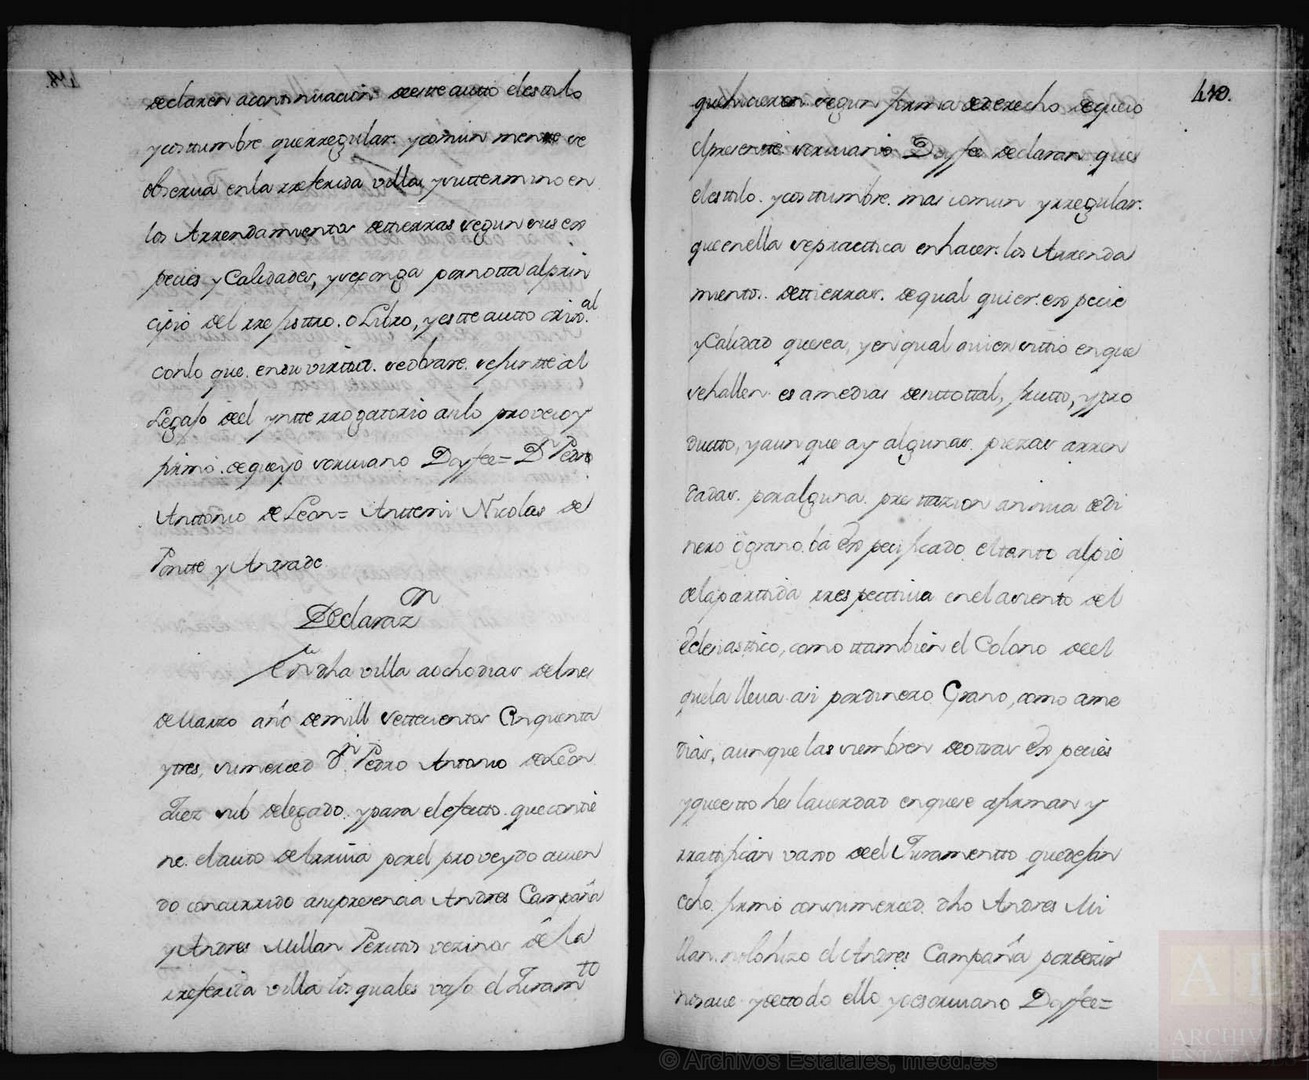 declaren acontinuacion deesste autto elesttilo
ycosttumbre quexregular. ycomun mente se
obserua enla rreferida villa, ysuttermino en
los Arrendamientos detierras segun sus es
pecies yCalidades, yseponga pornotta alprin
cipio del rrejisttro. oLibro, yeste autto orixnal
conlo que. ensu virttud. seobrare. sejuntte al
Legajo deel ynterrogatorio asilo proveioy
firmó. dequeyo escriuano Doyfee= Dn Pedro
Anttonio deLeon= Anttemi Nicolas de
Pontte y Andrade.
Declarazn
En dha villa aochodias delmes
deMarzo año demill settecientos Cinquenta
ytres, sumerced Dn. Pedro Antonio deLeon
Juez subdelegado. ypara elefecto. queconttie
ne. elauto dearriua porel proveydo auien
do concurrido asupresencia Andres Campaña
yAndres Millan Perittos vezinos dela
rreferida villa los. quales vajo el Juramto
410.
quehicieron. segun forma dederecho dequeio
elpresentte escriuano Doyfee declaran que
elesttilo. ycosttumbre. mas comun yrregular.
queenella sepracttica enhacer. los Arrenda
mientos. dettierras. dequal quier. especie
yCalidad quesea, yenqual quier sittio enque
sehallen. es amedias desuttottal, frutto, ypro
ductto, yaunque ay algunas. piezas arren
dadas. poralguna. presttazion annua dedi
nero ógrano. bá especificado eltanto alpie
delapartida rrespecttiua enelasiento del
Eclesiasttico, como ttambien el Colono deel
quela lleua asi pordinero Grano, como ame
dias, aunque las siembren deottras especies
yqueestto hes lauerdad enquese afirman y
rrattifican vajo deel Juramentto quedejan
echo. firmó consumerced. dho Andres Mi
llan. nolohizo el Andres Campaña pordezir
nosaue ydettodo ello yoescriuano Doyfee=
© Archivos Estatales, mecd.es